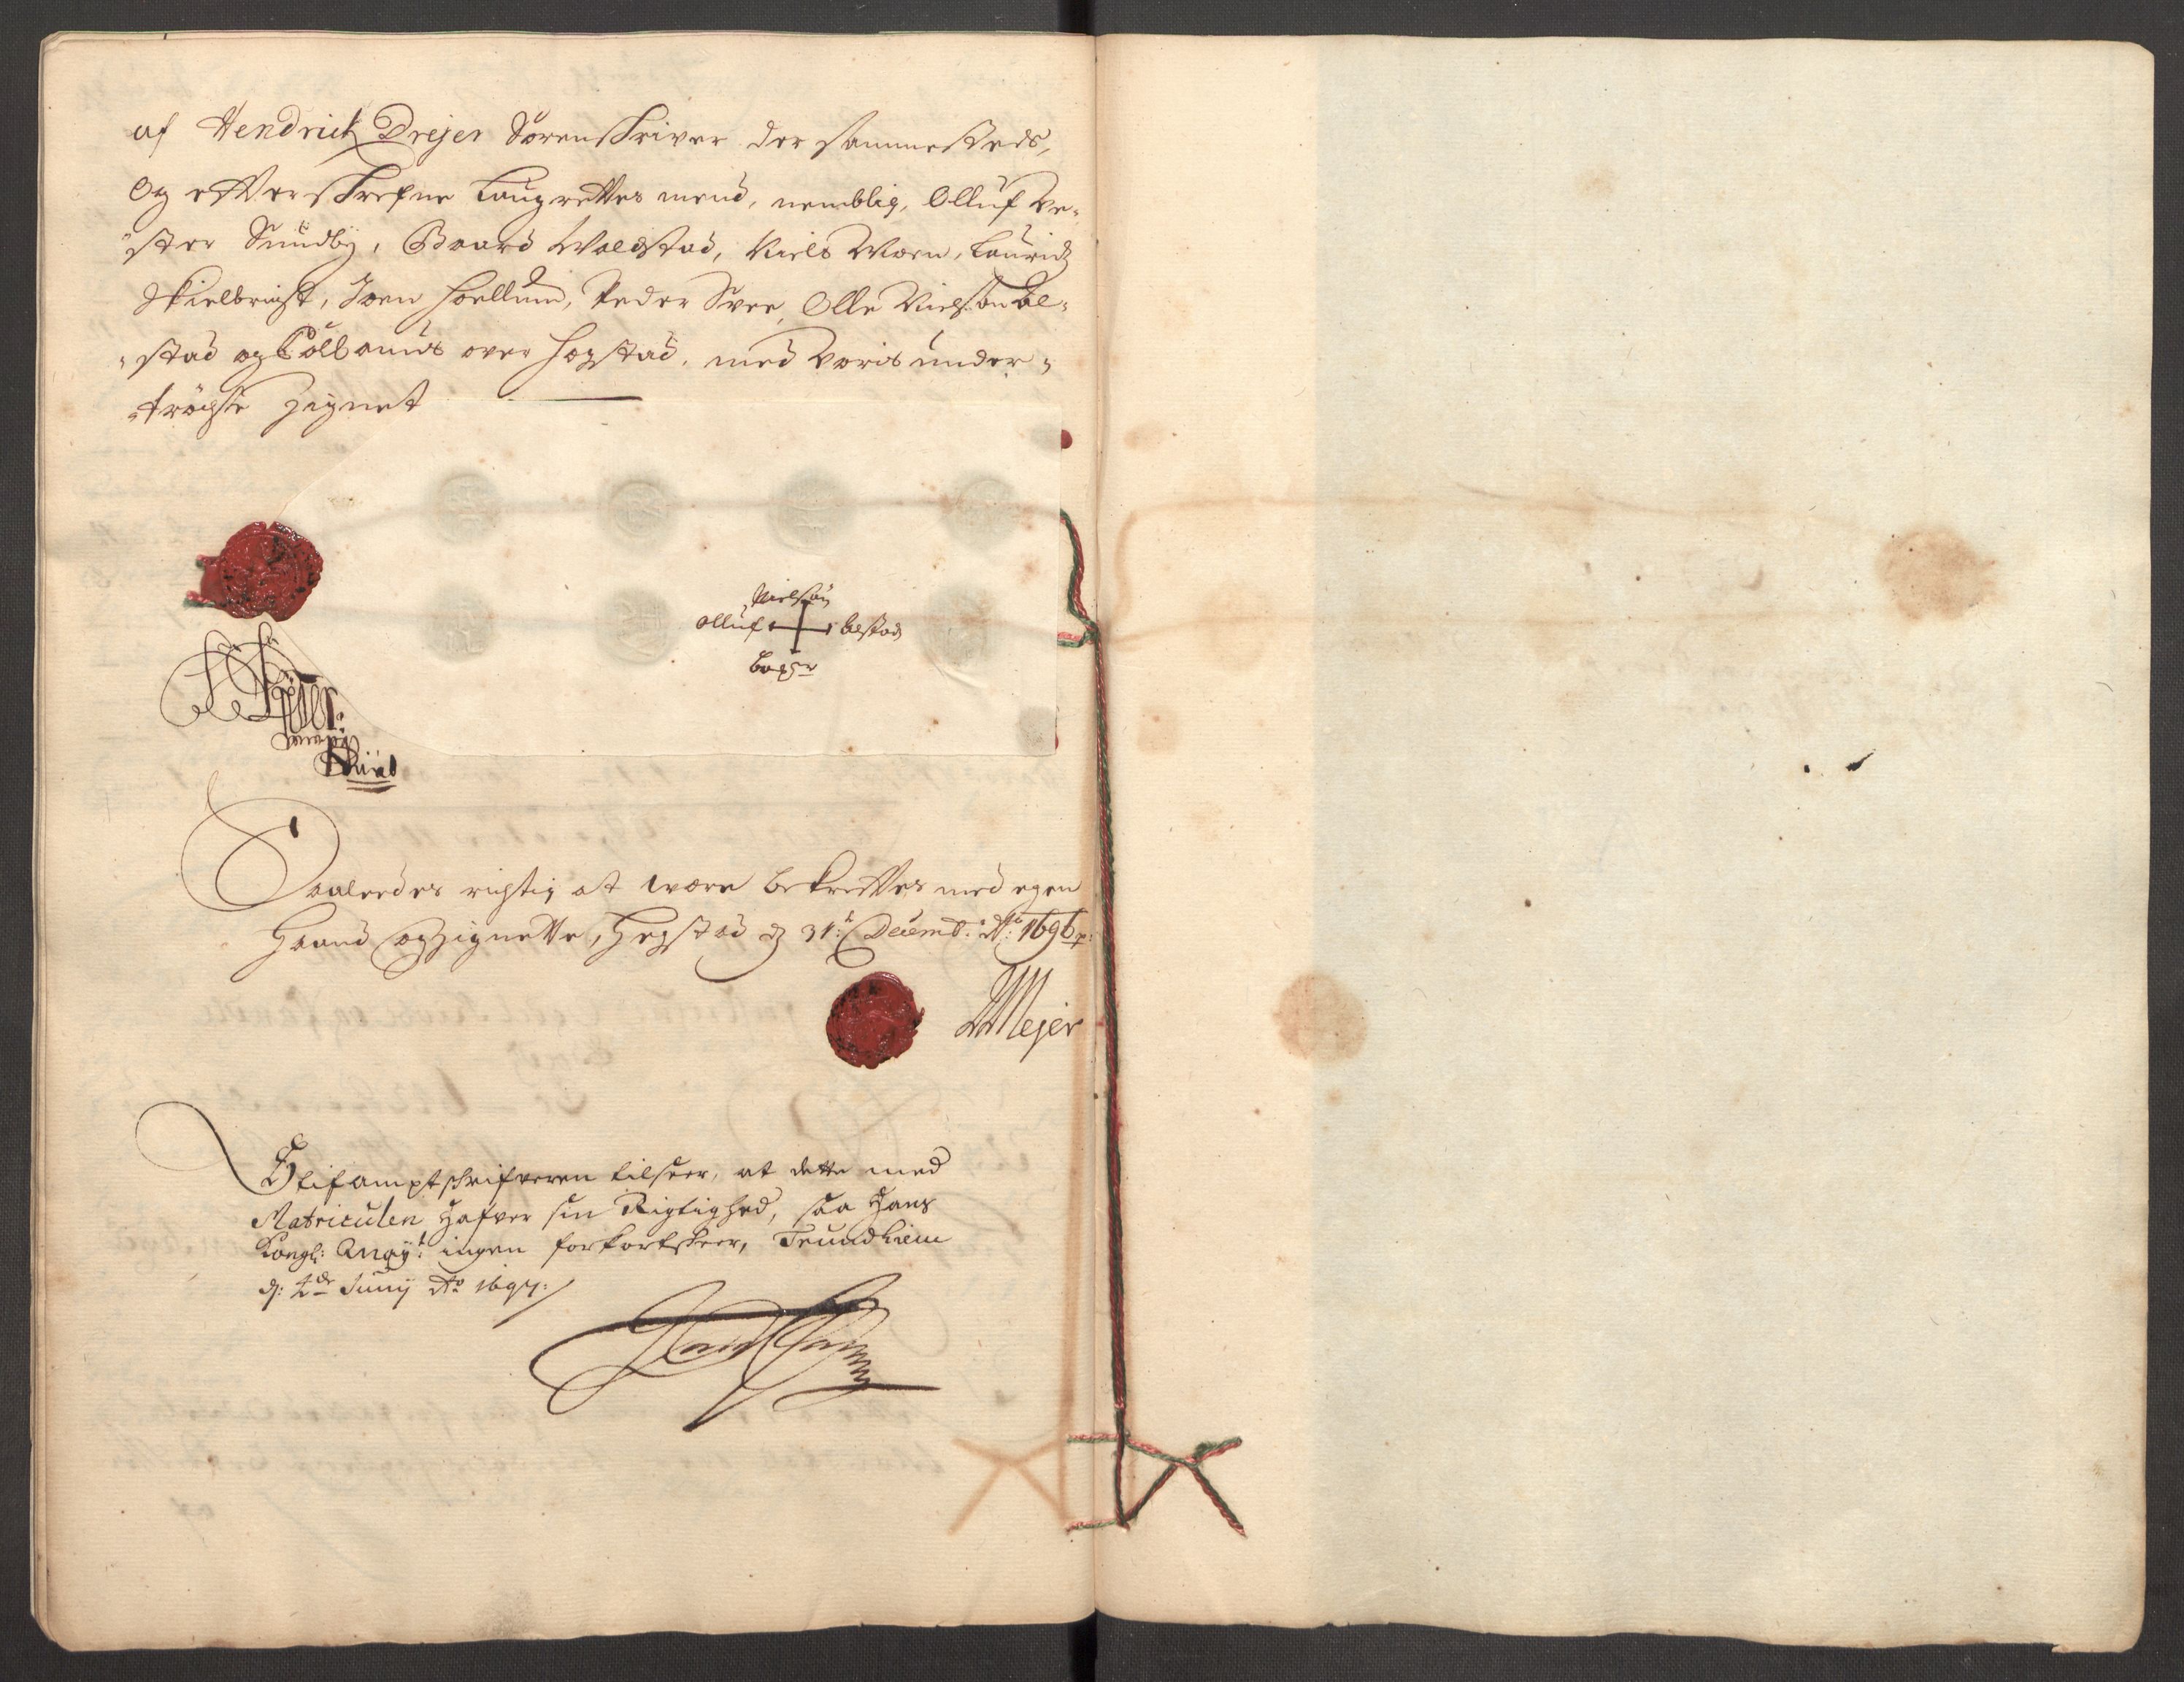 af Hendrich Drejer Sorenskriver der sammesteds,
Og efterskrefne Laugrettes mend, nemblig, Olluf Ve-
ster Sundby, Baard Woldstad, Niels Moen, Lauridz
Skielbreist, Joen Hoellum, Peder Svee, Olle Nielsøn Bal-
stad og Colbanus over Hogstad, med voris under-
trögte Zignet
Nielsøn
Olluf balstad
Hiuel
Saaledes rigtig at were bekreftes med egen
Haand og Zignette, Hegstad d 31t Decemb: Ao 1696
Mejer
Stifamptschrifveren tilseer, at dette med
Matriculen hafver sin Rigtighed, saa Hans
Kongl: Mayt: ingen forkortskeer, Trundhiem
d: 2de Junij Ao 1697: